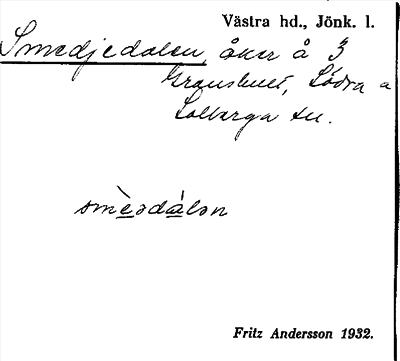 Västra hd., Jönk. l.
Smedjedalen, åker å 3
Granshult, Södra a
Solberga sn.
smèədálən
Fritz Andersson 1932.